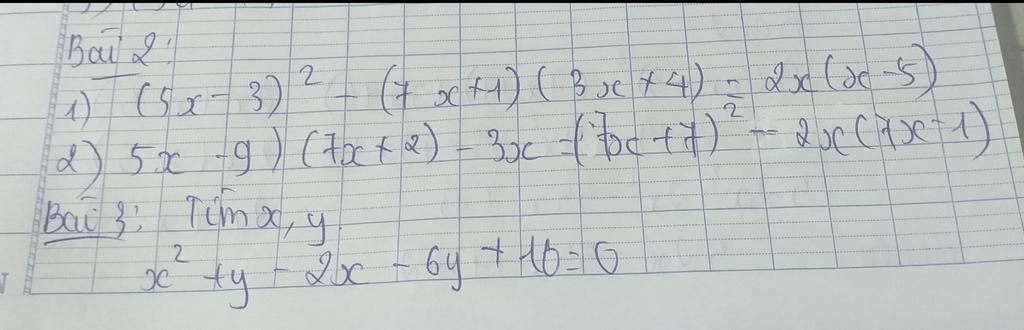 Bài 2:
1) (5x - 3)² - (7x+1)(3x+4) = 2x(x-5)
2) 5x - 9)(7x+2) - 3x = (7x+7)² - 2x(7x-1)
Bài 3: Tìm x, y
x² + y - 2x - 6y + 10 = 0